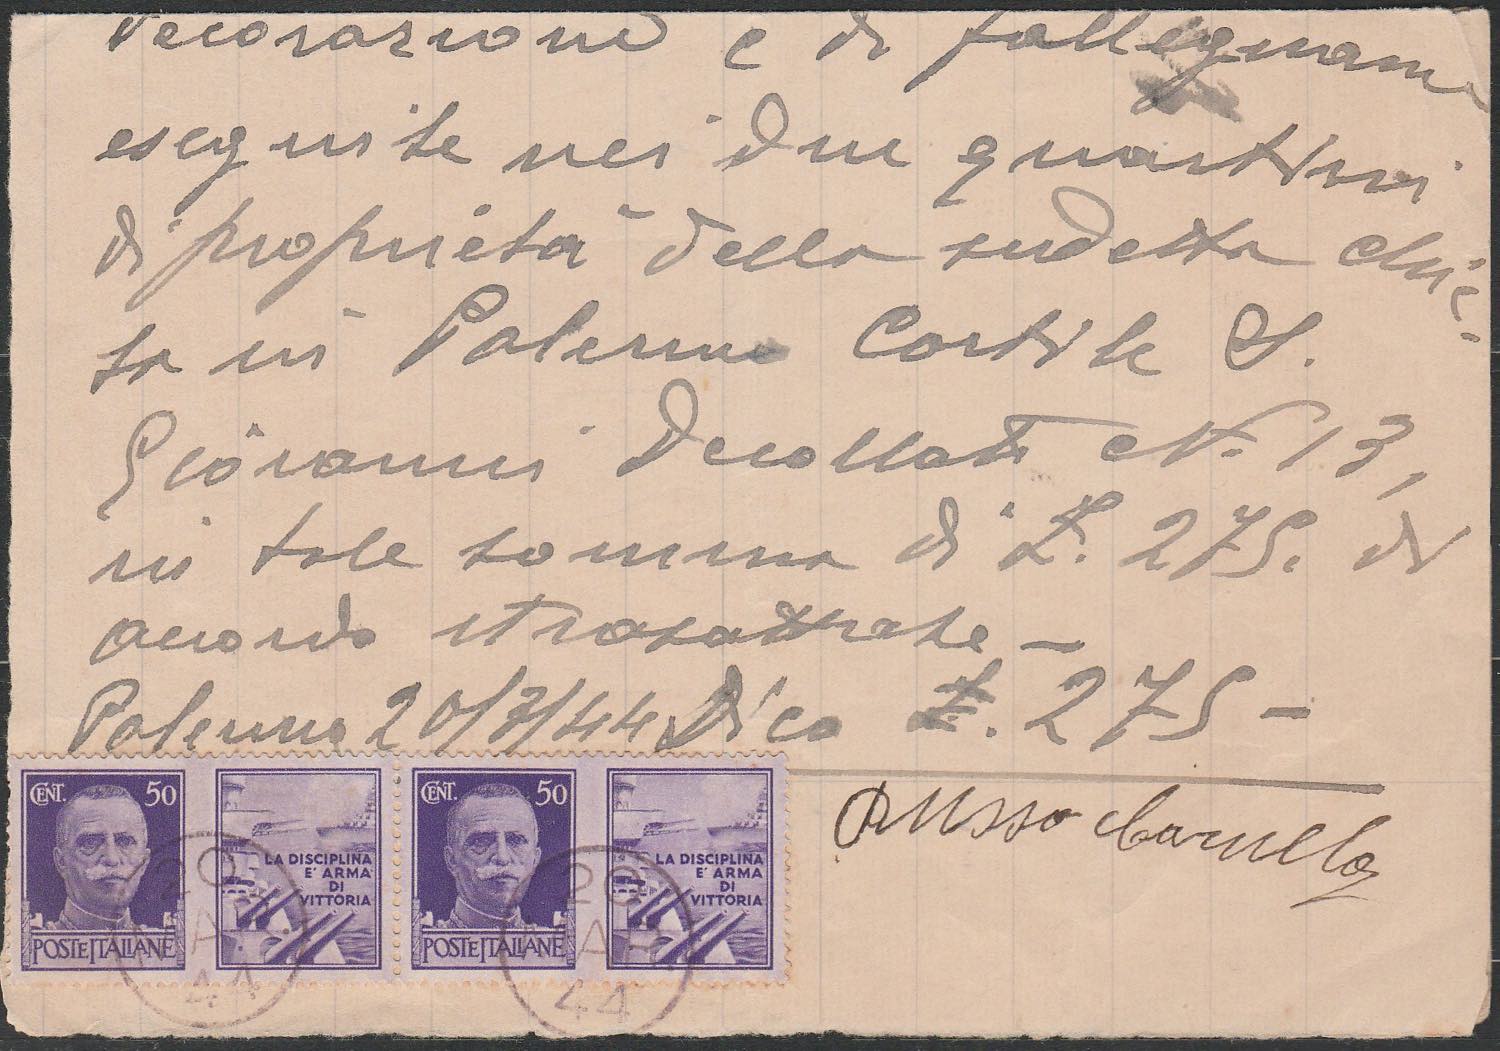 Decorazione e di fallegname
eseguite nei due quartini
di proprietà della sudetta chie-
sa in Palermo Cortile S.
Giovanni Decollato N. 13,
in tale somma di £. 275. di
accordo strasattate –
Palermo 20/3/44 Dico £. 275 –
Russo Carmelo
CENT. 50
POSTE ITALIANE
LA DISCIPLINA
E' ARMA
DI
VITTORIA
CENT. 50
POSTE ITALIANE
LA DISCIPLINA
E' ARMA
DI
VITTORIA
20
MAR.
44
20
MAR.
44